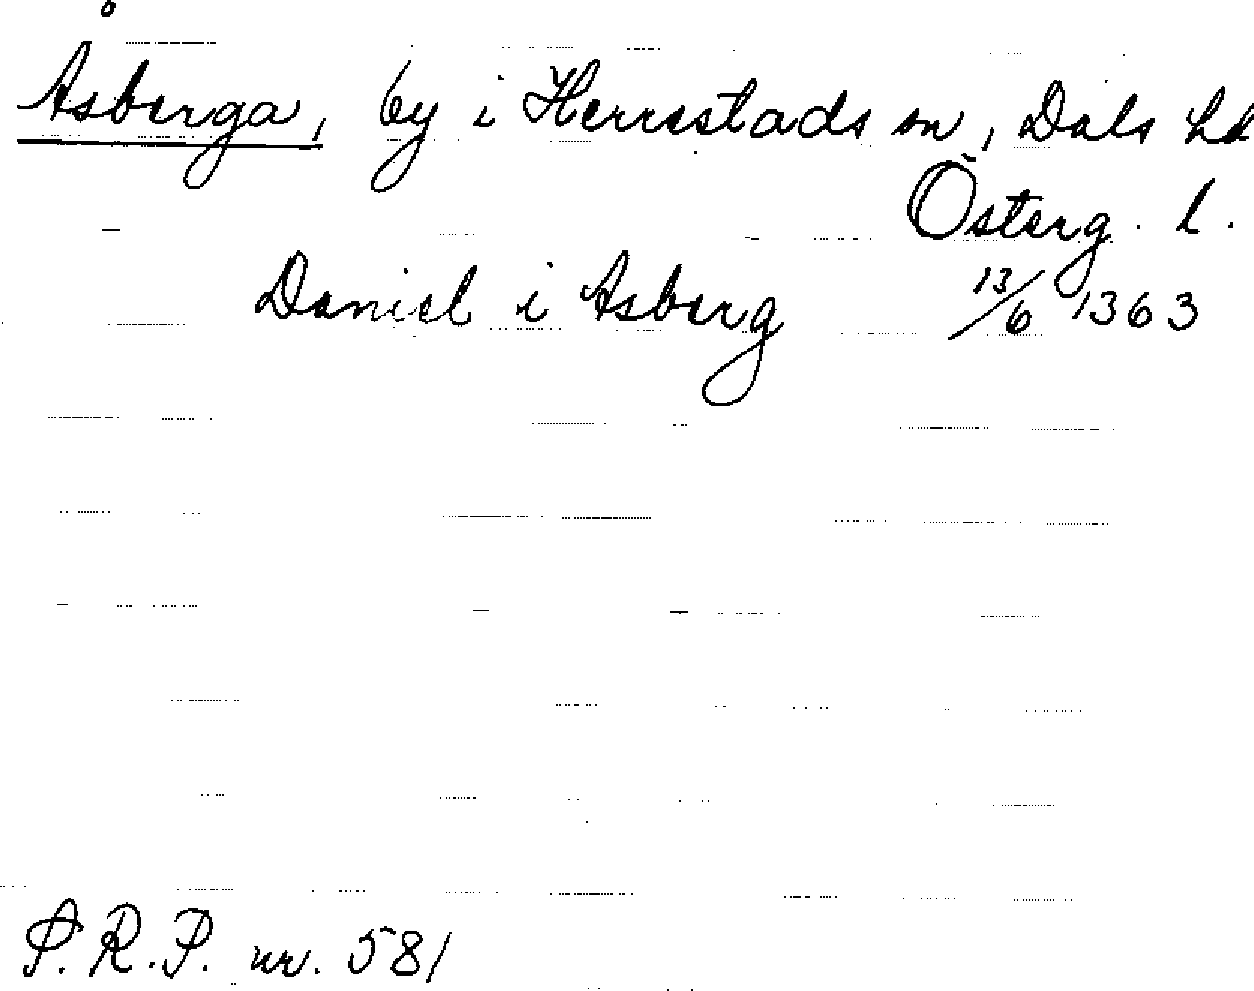 Åsberga, by i Herrestads sn, Dals hd
Österg. l.
Daniel i Asberg 13/6 1363
S.R.P. nr. 581